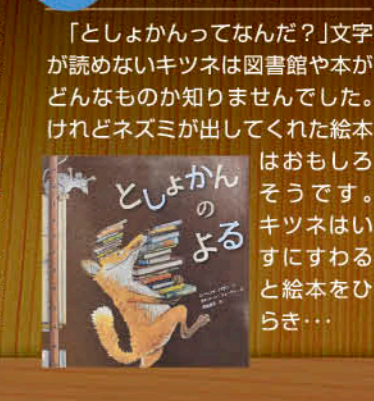 「としょかんってなんだ？」文字
が読めないキツネは図書館や本が
どんなものか知りませんでした。
けれどネズミが出してくれた絵本
はおもしろ
そうです。
キツネはい
すにすわる
と絵本をひ
らき･･･
としょかん
の
よる